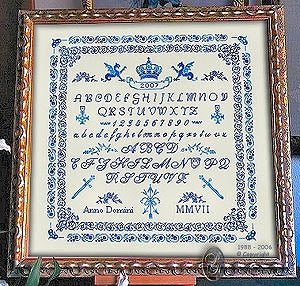 2007
ABCDEFGHIJKLMNOP
QRSTUVWXYZ
1234567890
abcdefghijklmnopqrstuvwxyz
ABCD
EFGHIJKLMNOPQ
RSTUVX
Anno Domini MMVII
1988 - 2006
© Copyright